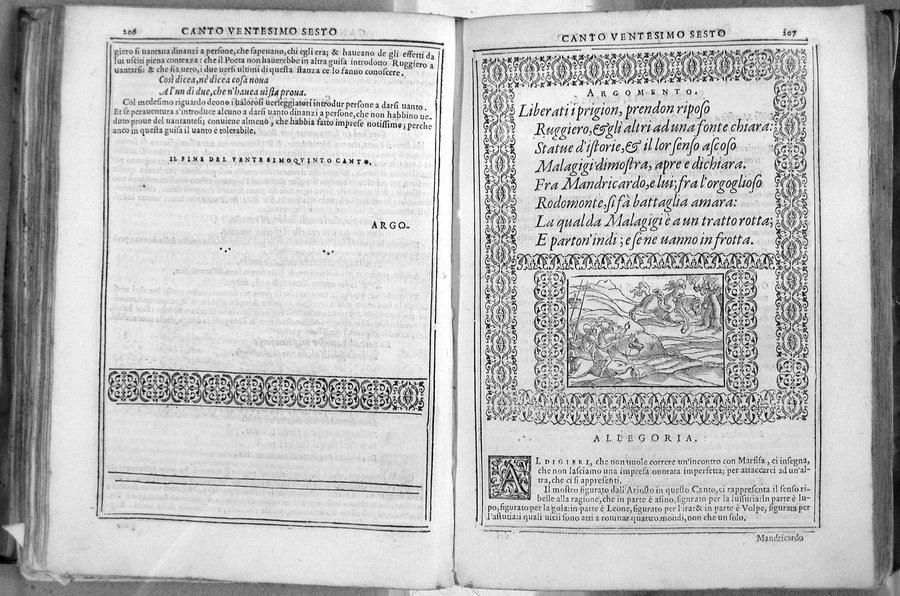 206 CANTO VENTESIMO SESTO
giero si uantaua dinanzi a persone, che sapeuano, chi egli era; & haueano de gli effetti da
lui usciti piena contezza: che il Poeta non hauerebbe in altra guisa introdotto Ruggiero a
uantarsi: & che sia uero, i due uersi ultimi di questa stanza ce lo fanno conoscere.
Così dicea, nè dicea cosa noua
A l'un di due, che n'hauea uista proua.
Col medesimo riguardo deono i ualorosi uerseggiatori introdur persone a darsi uanto.
Et se perauentura s'introduce alcuno a darsi uanto dinanzi a persone, che non habbino ue-
duto proue del uantantesi; conuiene almeno, che habbia fatto imprese notissime; perche
anco in questa guisa il uanto è tolerabile.
IL FINE DEL VENTESIMOQVINTO CANTO.
ARGO-
CANTO VENTESIMO SESTO 207
ARGOMENTO.
Liberati i prigion, prendon riposo
Ruggiero, & gli altri ad una fonte chiara:
Statue d'istorie, & il lor senso ascoso
Malagigi dimostra, apre e dichiara.
Fra Mandricardo, e lui; fra l'orgoglioso
Rodomonte, si fà battaglia amara:
La qual da Malagigi è a un tratto rotta;
E parton'indi; e se ne uanno in frotta.
ALLEGORIA.
ALDIGIERI, che non uuole correre un'incontro con Marfisa, ci insegna,
che non lasciamo una impresa onorata imperfetta; per attaccarci ad un'al-
tra, che ci si appresenti.
Il mostro figurato dall'Ariosto in questo Canto, ci rappresenta il senso ri-
belle alla ragione, che in parte è asino, figurato per la lussuria: in parte è lu-
po, figurato per la gola: in parte è Leone, figurato per l'ira: & in parte è Volpe, figurata per
l'astutia: i quali uicii sono atti a rouinar quattro mondi, non che un solo.
Mandricardo